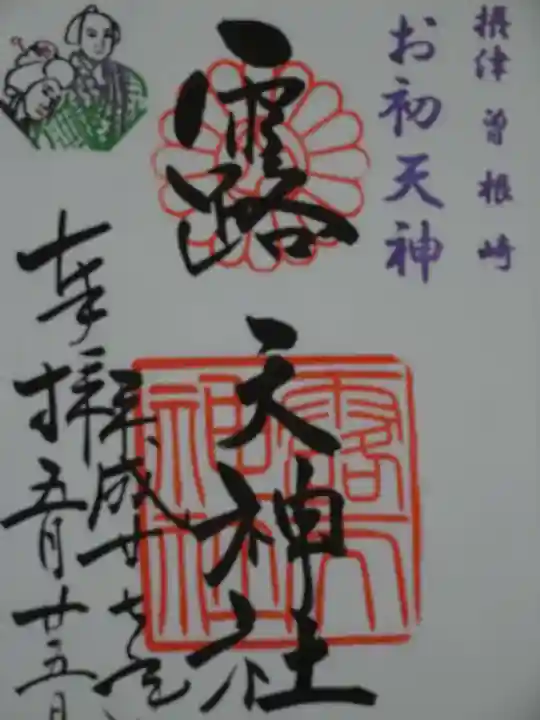 摂津 曽根崎
お初天神
露天神社
奉拝
平成廿七年
五月廿五日